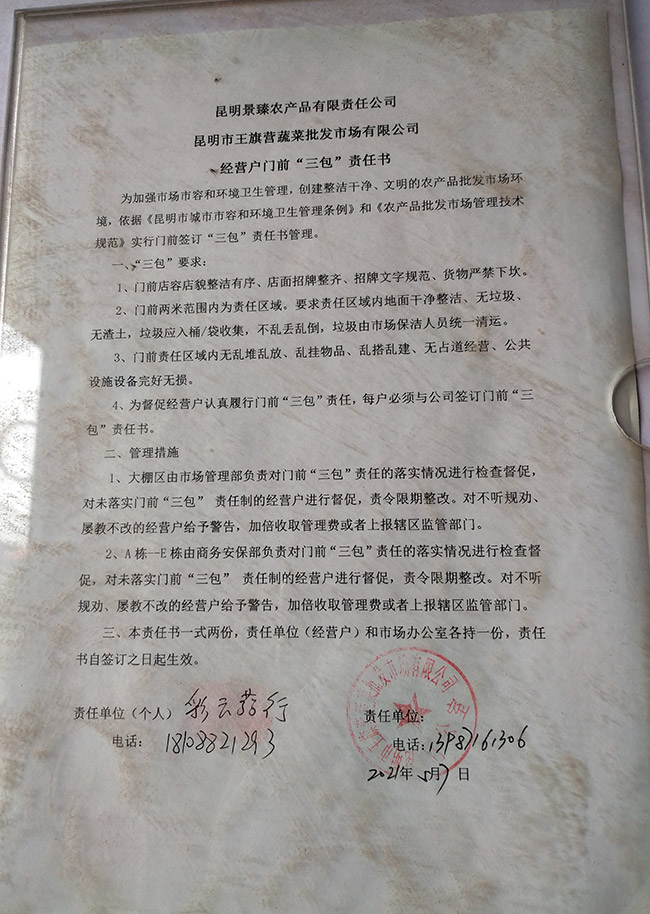 昆明景臻农产品有限责任公司
昆明市王旗营蔬菜批发市场有限公司
经营户门前“三包”责任书
为加强市场市容和环境卫生管理，创建整洁干净、文明的农产品批发市场环
境，依据《昆明市城市市容和环境卫生管理条例》和《农产品批发市场管理技术
规范》实行门前签订“三包”责任书管理。
一、“三包”要求：
1、门前店容店貌整洁有序、店面招牌整齐、招牌文字规范、货物严禁下坎。
2、门前两米范围内为责任区域。要求责任区域内地面干净整洁、无垃圾、
无渣土，垃圾应入桶/袋收集，不乱丢乱倒，垃圾由市场保洁人员统一清运。
3、门前责任区域内无乱堆乱放、乱挂物品、乱搭乱建、无占道经营、公共
设施设备完好无损。
4、为督促经营户认真履行门前“三包”责任，每户必须与公司签订门前“三
包”责任书。
二、管理措施
1、大棚区由市场管理部负责对门前“三包”责任的落实情况进行检查督促，
对未落实门前“三包” 责任制的经营户进行督促，责令限期整改。对不听规劝、
屡教不改的经营户给予警告，加倍收取管理费或者上报辖区监管部门。
2、A栋--E栋由商务安保部负责对门前“三包”责任的落实情况进行检查督
促，对未落实门前“三包” 责任制的经营户进行督促，责令限期整改。对不听
规劝、屡教不改的经营户给予警告，加倍收取管理费或者上报辖区监管部门。
三、本责任书一式两份，责任单位（经营户）和市场办公室各持一份，责任
书自签订之日起生效。
责任单位（个人） 彩云 行 责任单位：
电话： 18108821293 电话：
2021年5月 日